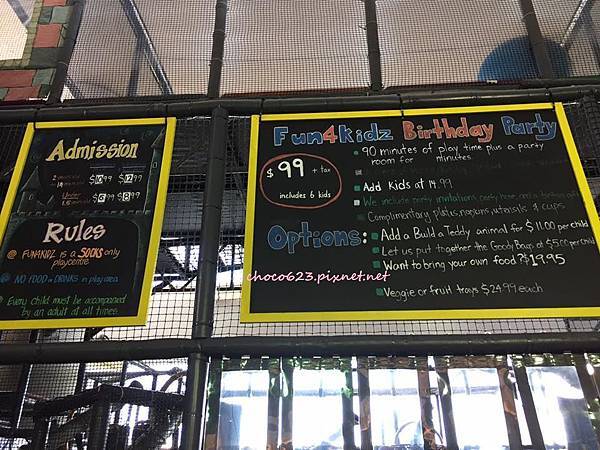 Admission
Under
Rules
FUN4KIDZ is a SOCKS only
playcentre
NO FOOD or DRINKS in play area
Every child must be accompanied
by an adult at all times.
Fun4kidz Birthday Party
90 minutes of play time plus a party
room for minutes
$99 + tax
includes 6 kids
Add kids at 14.99
We include party invitations, party host, and a
Complimentary plates, napkins, utensils & cups
Options:
Add a Build a Teddy animal for $11.00 per child
Let us put together the Goody Bags at $5.00 per child
Want to bring your own food?? $19.95
Veggie or fruit trays $24.99 each
choco623.pixnet.net